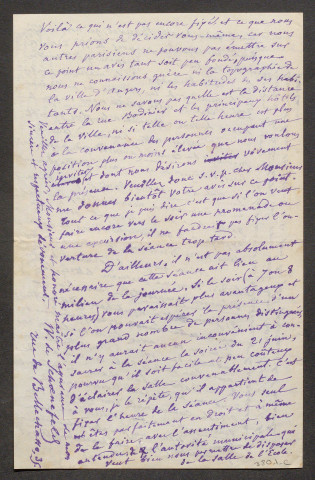 Voilà ce qui n'est pas encore fixé, et ce que nous
vous prions de décider vous-même, car nous
autres parisiens ne pouvons pas émettre sur
ce point un avis tant soit peu fondé, puisque
nous ne connaissons guère ni la topographie de
la ville d'Angers, ni les habitudes de ses habi-
tants. Nous ne savons pas quelle est la distance
entre la rue Bodinier et les principaux hôtels
de la ville, ni si telle ou telle heure est plus
à la convenance des personnes occupant une
position plus ou moins élevée que nous voulons
inviter et dont nous désirons vivement
la présence. Veuillez donc s.v.p. cher Monsieur
me donner bientôt votre avis sur ce point.
Tout ce que je puis dire c'est que si l'on veut
faire encore vers le soir une promenade ou
une excursion, il ne faudra pas fixer l'ou-
verture de la séance trop tard.
D'ailleurs, il n'est pas absolument
nécessaire que cette séance ait lieu au
milieu de la journée. Si le soir (à 7 ou 8
heures) vous paraissait plus avantageux et
si l'on pouvait espérer la présence d'un
plus grand nombre de personnes distinguées
il n'y aurait aucun inconvénient à con-
sacrer à la séance la soirée du 21 juin,
pourvu qu'il soit facile et peu coûteux
d'éclairer la salle convenablement. C'est
à vous, je le répète, qu'il appartient de
fixer l'heure de la séance. Vous seul
êtes parfaitement en droit et à même
de la faire, avec l'assentiment, bien
entendu, de l'autorité municipale qui
veut bien nous permettre de disposer
de la salle de l'École.
Veuillez agréer, Monsieur et honoré confrère, l'expression de mon
sincère et respectueux dévouement.
W. de Schoenefeld
rue de Bellechasse, 35.